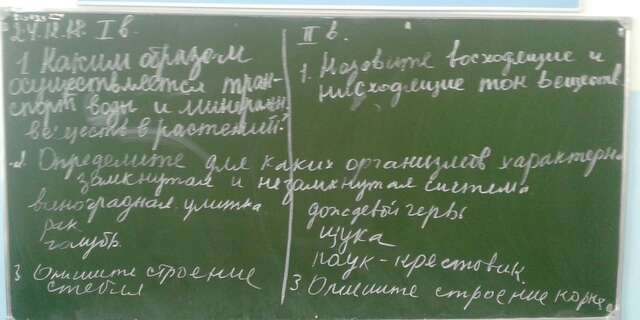 24.12.18. I в.
1 Каким образом
осуществляется тран-
спорт воды и минеральн
веществ в растений?
2 Определите для каких организмов характерн
замкнутая и незамкнутая система
виноградная улитка
рак
голубь
3 Опишите строение
стебля
II в.
1. Назовите восходящие и
нисходящие ток веществ
дождевой червь
щука
паук-крестовик
3. Опишите строение корня